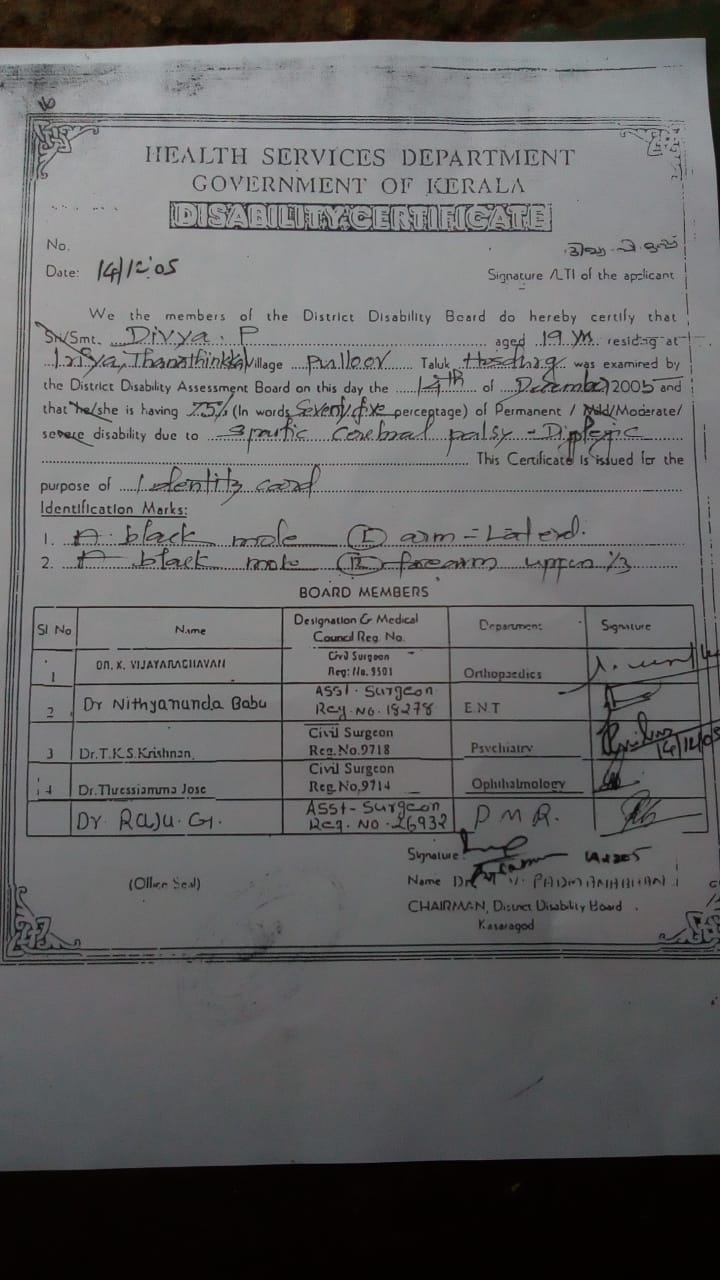 16
HEALTH SERVICES DEPARTMENT
GOVERNMENT OF KERALA
DISABILITY CERTIFICATE
No.
Date: 14/12/05
Signature /LTI of the applicant
We the members of the District Disability Board do hereby certify that
Sri/Smt. Divya. P aged 19 residing at
Village Pulloor Taluk Hosdurg was examined by
the District Disability Assessment Board on this day the 14th of December 2005 and
that he/she is having 75% (In words Seventy five percentage) of Permanent / Mild/Moderate/
severe disability due to Spastic Cerebral palsy - Diplegic
This Certificate is issued for the
purpose of Identity card
Identification Marks:
1. A black mole (L) arm = Lateral.
2. A black mole (R) forearm upper 1/3
BOARD MEMBERS
Sl No Name Designation & Medical Council Reg. No. Department Signature
1 DR. K. VIJAYARAGHAVAN Civil Surgeon Reg: No. 9501 Orthopaedics
2 Dr Nithyananda Babu Asst. Surgeon Reg. No. 18278 E.N.T
3 Dr.T.K.S.Krishnan Civil Surgeon Reg.No.9718 Psychiatry 14/12/05
4 Dr.Thressiamma Jose Civil Surgeon Reg.No.9714 Ophthalmology
Dr. Raju. G. Asst- Surgeon Reg. No. 26932 P M R.
Signature
(Office Seal)
Name Dr. M V. PADMANABHAN
CHAIRMAN, District Disability Board
Kasaragod